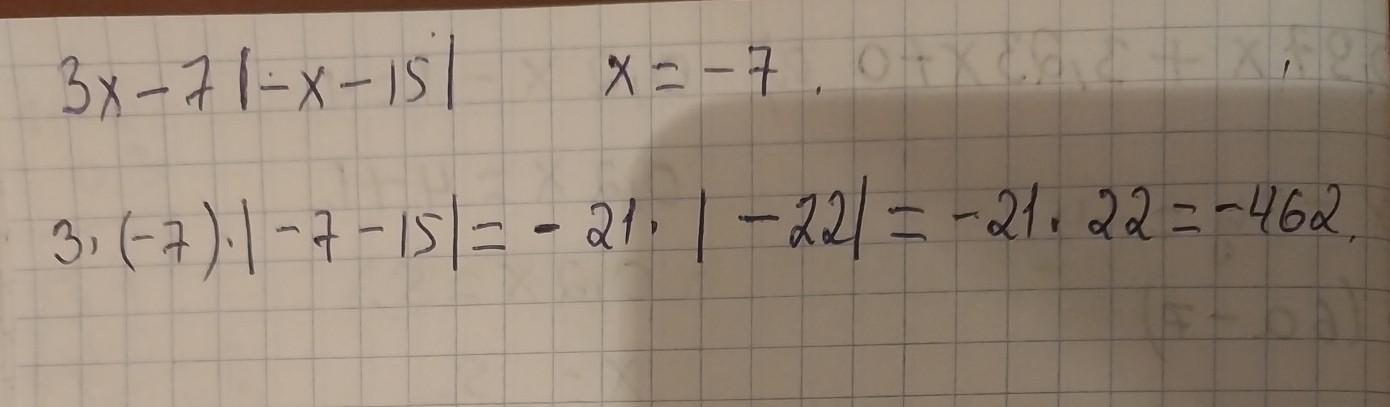 3x - 7 |-x - 15| x = -7.
3 · (-7) · |-7 - 15| = - 21 · | - 22| = - 21 · 22 = -462.